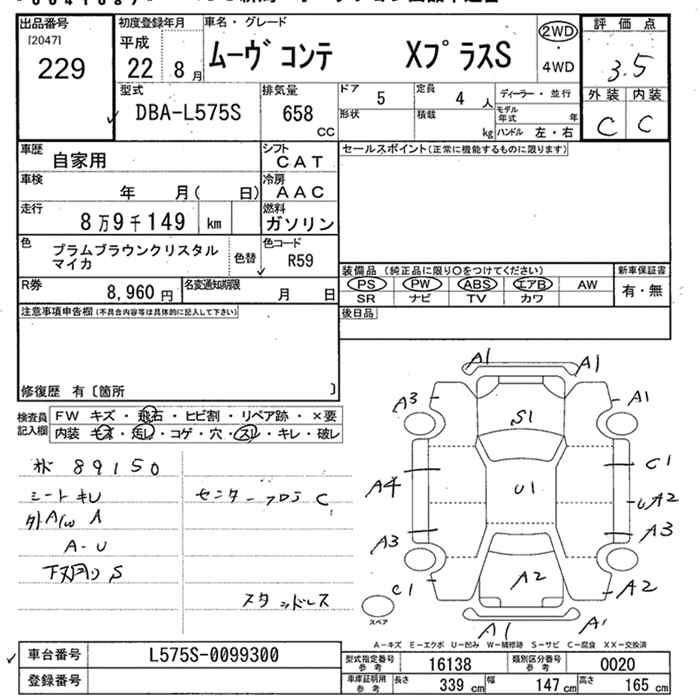 出品番号
[2047]
229
初度登録年月
平成
22 8月
車名・グレード
ムーヴコンテ XプラスS
2WD
・
4WD
評価点
3.5
外装 内装
C C
型式
DBA-L575S
排気量
658
CC
ドア 5
定員 4 人
ディーラー・並行
形状
積載
kg
モデル年式 年
ハンドル 左・右
車歴
自家用
シフト
CAT
セールスポイント(正常に機能するものに限ります)
車検
年 月( 日)
冷房
AAC
走行
8万9千149 km
燃料
ガソリン
色
プラムブラウンクリスタル
マイカ
色替
色コード
R59
装備品(純正品に限り○をつけてください)
新車保証書
PS PW ABS エアB AW
SR ナビ TV カワ
有・無
R券
8,960円
名変通知期限
月 日
後日品
注意事項申告欄(不具合内容等は具体的に記入して下さい)
修復歴 有〔箇所 〕
検査員
記入欄
FW キズ・飛石・ヒビ割・リペア跡・×要
内装 キズ・汚レ・コゲ・穴・スレ・キレ・破レ
89150
シートキU
外A/W A
A-U
下廻り S
センターフロア C
スタッドレス
A1 A1
A3 A1
S1
C1
A4
U1
UA2
A3 A3
C1 A2 A2
A1 A1
スペア
A-キズ E-エクボ U-凹み W-補修跡 S-サビ C-腐食 XX-交換済
車台番号
L575S-0099300
登録番号
型式指定番号
参考
16138
類別区分番号
参考
0020
車庫証明用
参考
長さ 339cm
幅 147cm
高さ 165cm